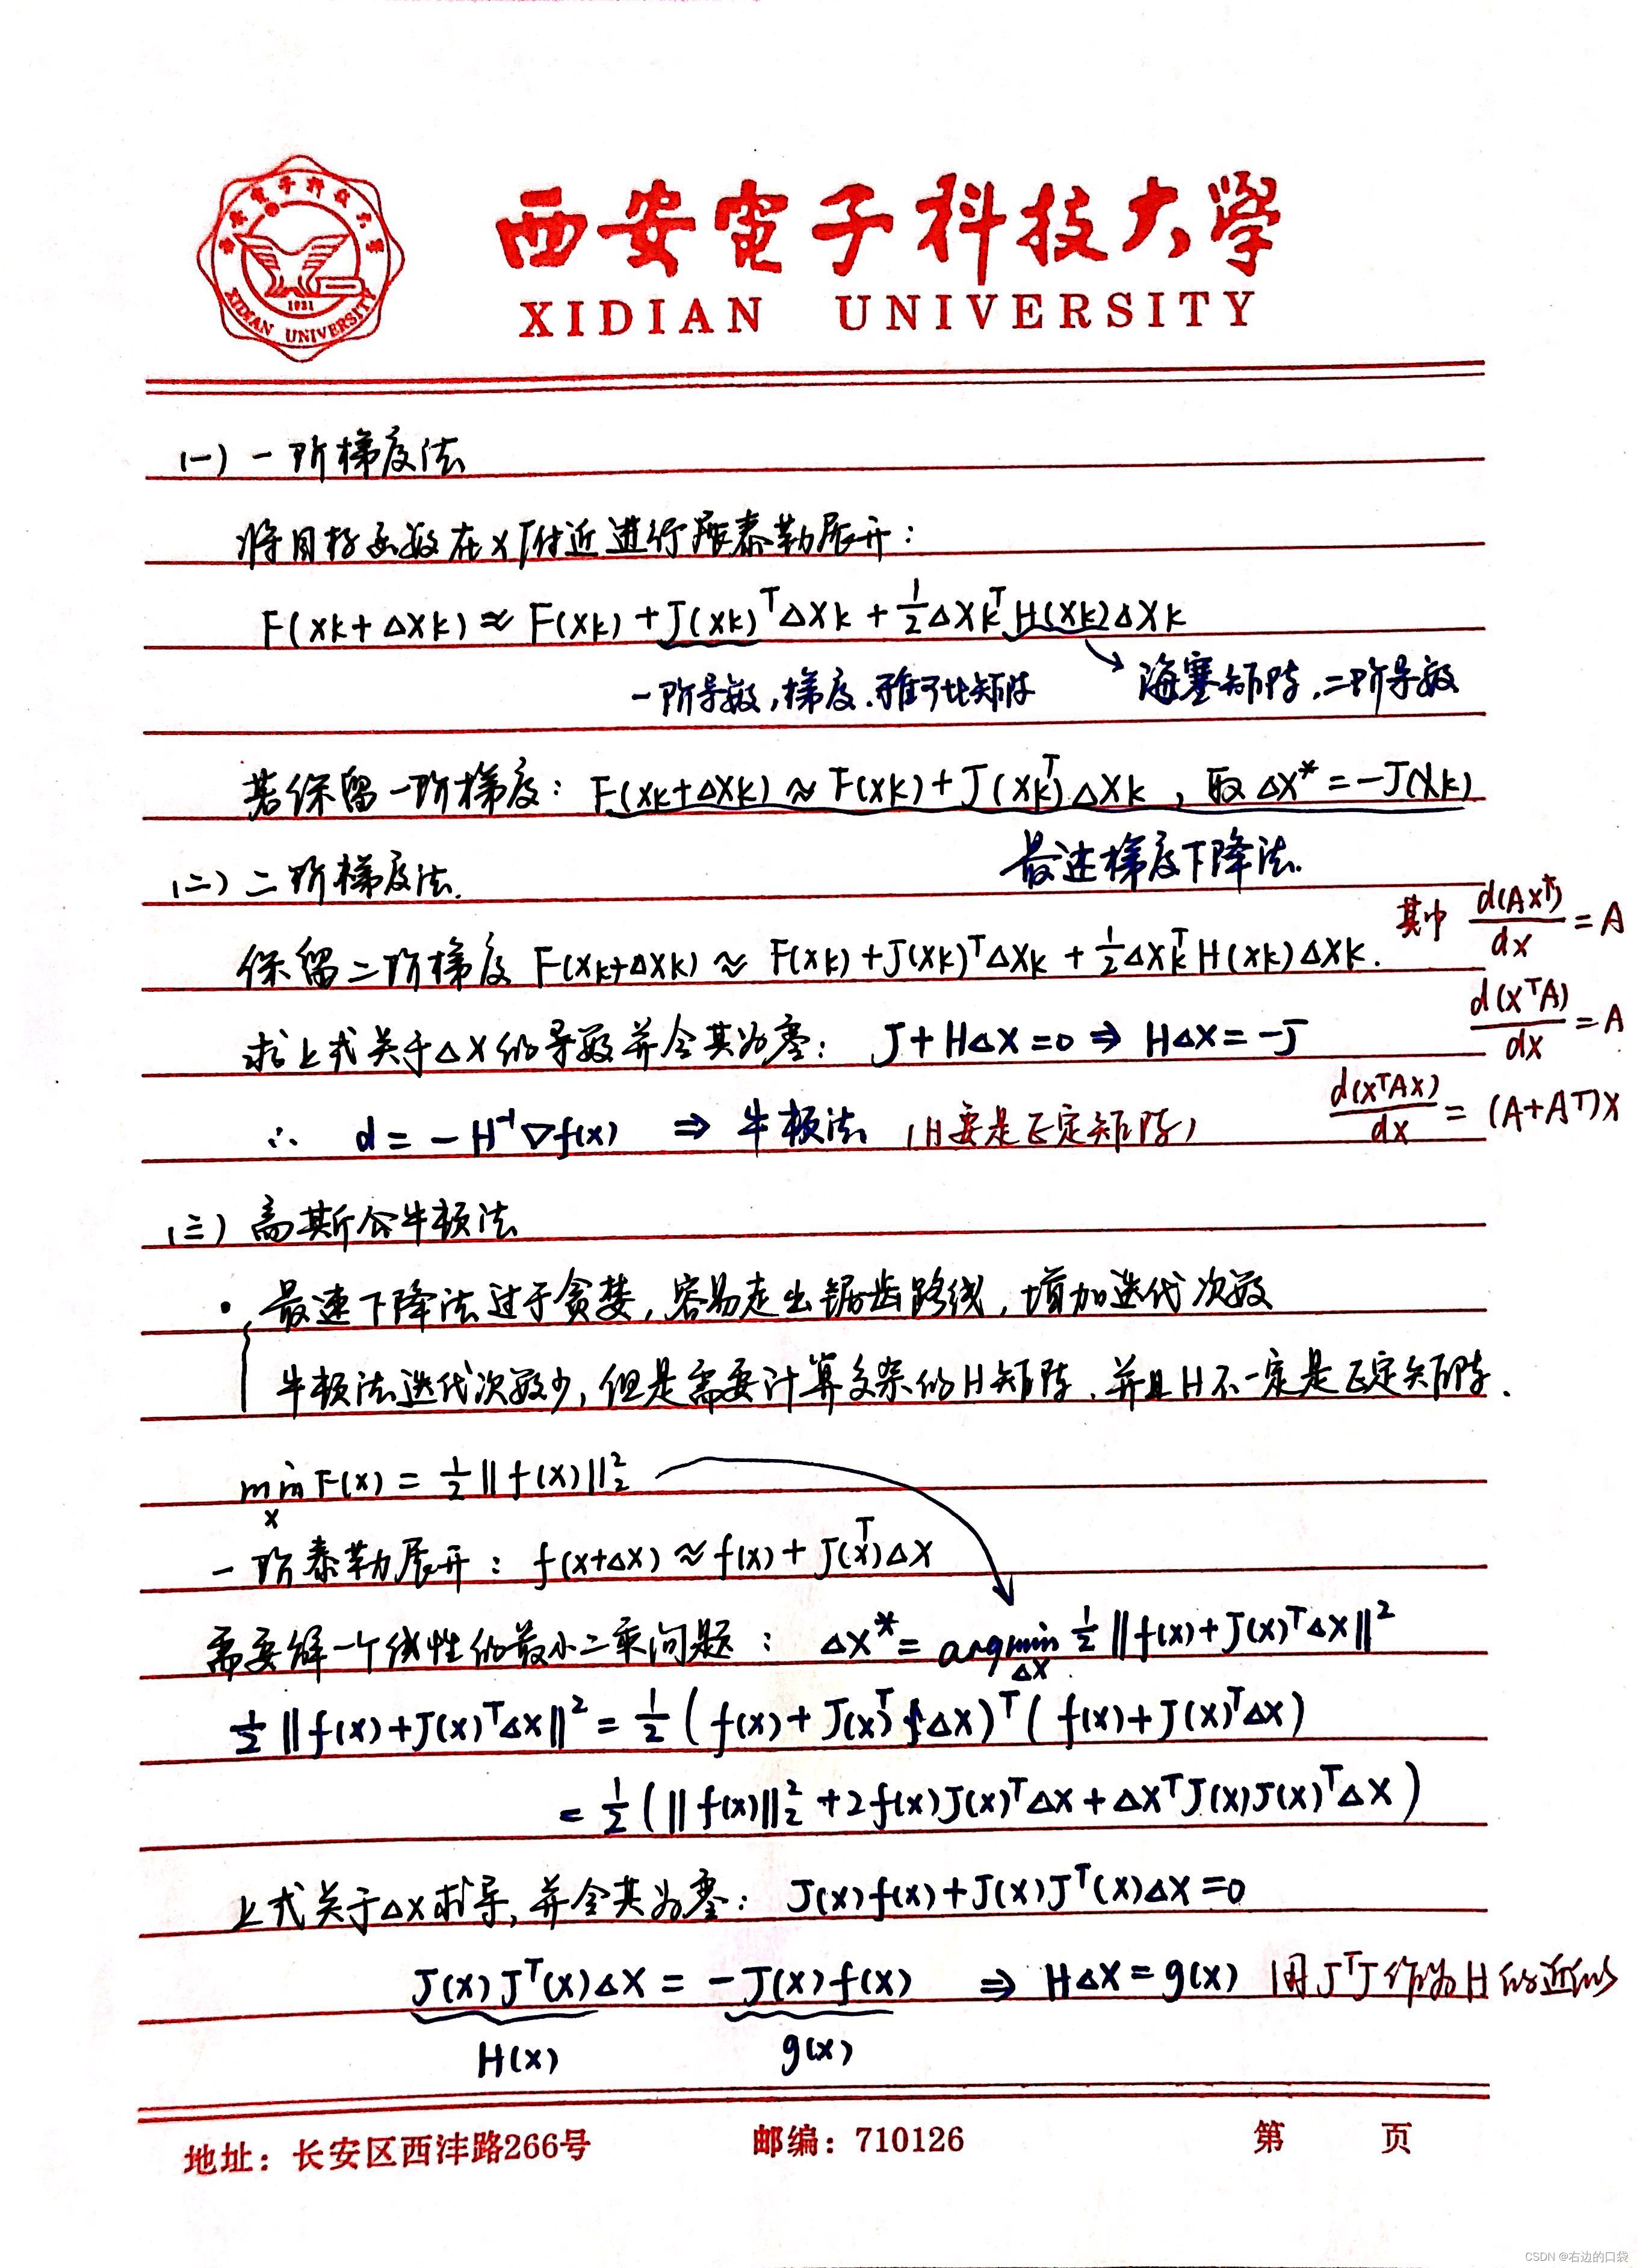 西安電子科技大學
XIDIAN UNIVERSITY
1931
XIDIAN UNIVERSITY
(一) 一阶梯度法
将目标函数在x附近进行展泰勒展开：
F(xk+Δxk) ≈ F(xk) + J(xk)^T Δxk + 1/2 Δxk^T H(xk) Δxk
一阶导数，梯度，雅可比矩阵 海塞矩阵，二阶导数
若保留一阶梯度：F(xk+Δxk) ≈ F(xk) + J(xk)^T Δxk ，取 Δx* = -J(xk)
最速梯度下降法.
(二) 二阶梯度法.
其中 d(Ax^T)/dx = A
保留二阶梯度 F(xk+Δxk) ≈ F(xk) + J(xk)^T Δxk + 1/2 Δxk^T H(xk) Δxk.
d(x^T A)/dx = A
求上式关于Δx的导数并令其为零： J + HΔx = 0 ⇒ HΔx = -J
d(x^T A x)/dx = (A+A^T)x
∴ d = -H^-1 ∇f(x) ⇒ 牛顿法 (H要是正定矩阵)
(三) 高斯牛顿法
· 最速下降法过于贪婪，容易走出锯齿路线，增加迭代次数
牛顿法迭代次数少，但是需要计算复杂的H矩阵，并且H不一定是正定矩阵.
min_x F(x) = 1/2 ||f(x)||_2^2
一阶泰勒展开： f(x+Δx) ≈ f(x) + J(x)^T Δx
需要解一个线性的最小二乘问题： Δx* = argmin_Δx 1/2 ||f(x)+J(x)^T Δx||^2
1/2 ||f(x)+J(x)^T Δx||^2 = 1/2 (f(x)+J(x)^T Δx)^T (f(x)+J(x)^T Δx)
= 1/2 (||f(x)||_2^2 + 2f(x)J(x)^T Δx + Δx^T J(x)J(x)^T Δx)
上式关于Δx求导，并令其为零： J(x)f(x) + J(x)J^T(x)Δx = 0
J(x)J^T(x)Δx = -J(x)f(x) ⇒ HΔx = g(x) 用J^T J作为H的近似
H(x) g(x)
地址：长安区西沣路266号 邮编：710126 第 页
CSDN @右边的口袋